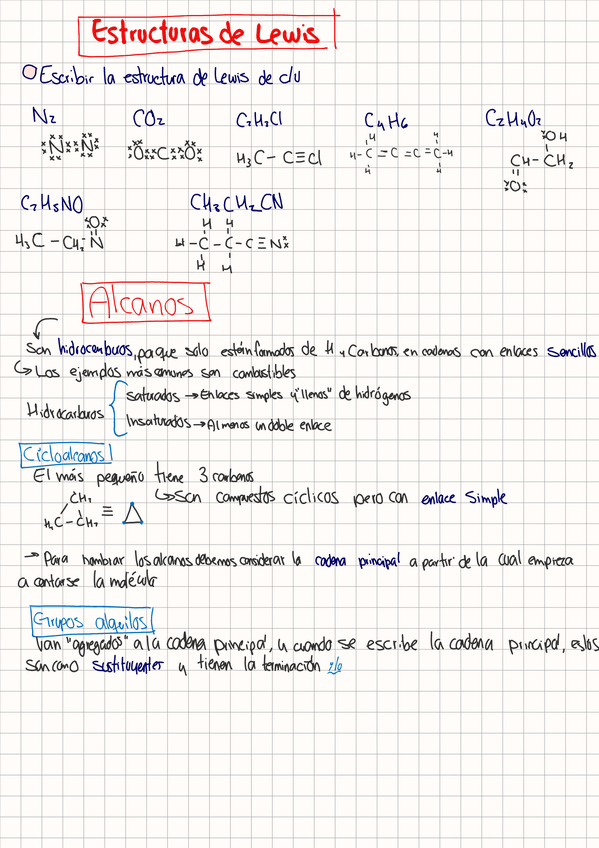 Estructuras de Lewis
Escribir la estructura de Lewis de c/u
N2 CO2 C2H2Cl C4H6 C2H4O2
N N O C O H3C - C≡Cl H-C=C=C=C-H OH
H H H H CH-CH2
O
C2H5NO CH3CH2CN
O H H
H3C-CH2 N H-C-C-C≡N
H H
Alcanos
Son hidrocarburos, porque solo están formados de H y Carbonos, en cadenas con enlaces sencillos
Los ejemplos más comunes son combustibles
Hidrocarburos
saturados → Enlaces simples y "llenos" de hidrógenos
Insaturados → Al menos un doble enlace
Cicloalcanos
El más pequeño tiene 3 carbonos
Son compuestos cíclicos pero con enlace simple
CH2
H2C-CH2 ≡ △
→ Para nombrar los alcanos debemos considerar la cadena principal a partir de la cual empieza
a contarse la molécula
Grupos alquilos
Van "agregados" a la cadena principal, y cuando se escribe la cadena principal, estos
son como sustituyentes y tienen la terminación ilo